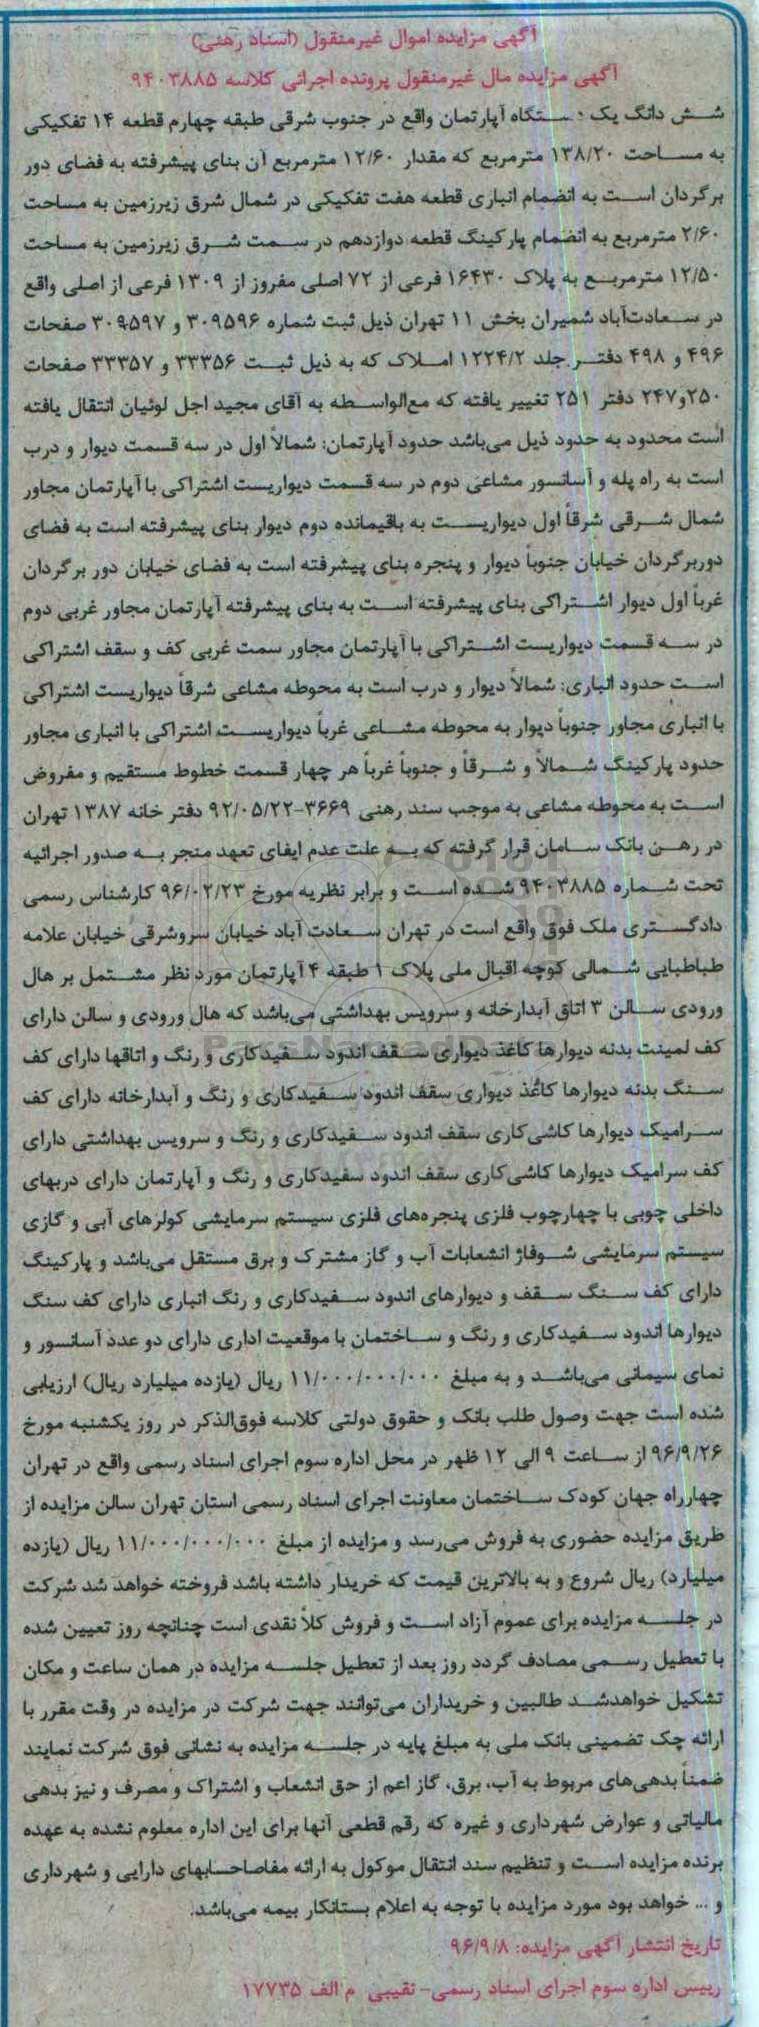 آگهی مزایده اموال غیرمنقول (اسناد رهنی)
آگهی مزایده مال غیرمنقول پرونده اجرائی کلاسه ۹۴۰۳۸۸۵
شش دانگ یک دستگاه آپارتمان واقع در جنوب شرقی طبقه چهارم قطعه ۱۴ تفکیکی
به مساحت ۱۳۸/۲۰ مترمربع که مقدار ۱۲/۶۰ مترمربع آن بنای پیشرفته به فضای دور
برگردان است به انضمام انباری قطعه هفت تفکیکی در شمال شرق زیرزمین به مساحت
۲/۶۰ مترمربع به انضمام پارکینگ قطعه دوازدهم در سمت شرق زیرزمین به مساحت
۱۲/۵۰ مترمربع به پلاک ۱۶۴۳۰ فرعی از ۷۲ اصلی مفروز از ۱۳۰۹ فرعی از اصلی واقع
در سعادت‌آباد شمیران بخش ۱۱ تهران ذیل ثبت شماره ۳۰۹۵۹۶ و ۳۰۹۵۹۷ صفحات
۴۹۶ و ۴۹۸ دفتر جلد ۱۲۲۴/۲ املاک که به ذیل ثبت ۳۳۳۵۶ و ۳۳۳۵۷ صفحات
۲۵۰و۲۴۷ دفتر ۲۵۱ تغییر یافته که مع‌الواسطه به آقای مجید اجل لوئیان انتقال یافته
است محدود به حدود ذیل می‌باشد حدود آپارتمان: شمالاً اول در سه قسمت دیوار و درب
است به راه پله و آسانسور مشاعی دوم در سه قسمت دیواریست اشتراکی با آپارتمان مجاور
شمال شرقی شرقاً اول دیواریست به باقیمانده دوم دیوار بنای پیشرفته است به فضای
دوربرگردان خیابان جنوباً دیوار و پنجره بنای پیشرفته است به فضای خیابان دور برگردان
غرباً اول دیوار اشتراکی بنای پیشرفته است به بنای پیشرفته آپارتمان مجاور غربی دوم
در سه قسمت دیواریست اشتراکی با آپارتمان مجاور سمت غربی کف و سقف اشتراکی
است حدود انباری: شمالاً دیوار و درب است به محوطه مشاعی شرقاً دیواریست اشتراکی
با انباری مجاور جنوباً دیوار به محوطه مشاعی غرباً دیواریست اشتراکی با انباری مجاور
حدود پارکینگ شمالاً و شرقاً و جنوباً غرباً هر چهار قسمت خطوط مستقیم و مفروض
است به محوطه مشاعی به موجب سند رهنی ۳۶۶۹-۹۲/۰۵/۲۲ دفتر خانه ۱۳۸۷ تهران
در رهن بانک سامان قرار گرفته که به علت عدم ایفای تعهد منجر به صدور اجرائیه
تحت شماره ۹۴۰۳۸۸۵ شده است و برابر نظریه مورخ ۹۶/۰۲/۲۳ کارشناس رسمی
دادگستری ملک فوق واقع است در تهران سعادت آباد خیابان سروشرقی خیابان علامه
طباطبایی شمالی کوچه اقبال ملی پلاک ۱ طبقه ۴ آپارتمان مورد نظر مشتمل بر هال
ورودی سالن ۳ اتاق آبدارخانه و سرویس بهداشتی می‌باشد که هال ورودی و سالن دارای
کف لمینت بدنه دیوارها کاغذ دیواری سقف اندود سفیدکاری و رنگ و اتاقها دارای کف
سنگ بدنه دیوارها کاغذ دیواری سقف اندود سفیدکاری و رنگ و آبدارخانه دارای کف
سرامیک دیوارها کاشی‌کاری سقف اندود سفیدکاری و رنگ و سرویس بهداشتی دارای
کف سرامیک دیوارها کاشی‌کاری سقف اندود سفیدکاری و رنگ و آپارتمان دارای دربهای
داخلی چوبی با چهارچوب فلزی پنجره‌های فلزی سیستم سرمایشی کولرهای آبی و گازی
سیستم سرمایشی شوفاژ انشعابات آب و گاز مشترک و برق مستقل می‌باشد و پارکینگ
دارای کف سنگ سقف و دیوارهای اندود سفیدکاری و رنگ انباری دارای کف سنگ
دیوارها اندود سفیدکاری و رنگ و ساختمان با موقعیت اداری دارای دو عدد آسانسور و
نمای سیمانی می‌باشد و به مبلغ ۱۱/۰۰۰/۰۰۰/۰۰۰ ریال (یازده میلیارد ریال) ارزیابی
شده است جهت وصول طلب بانک و حقوق دولتی کلاسه فوق‌الذکر در روز یکشنبه مورخ
۹۶/۹/۲۶ از ساعت ۹ الی ۱۲ ظهر در محل اداره سوم اجرای اسناد رسمی واقع در تهران
چهارراه جهان کودک ساختمان معاونت اجرای اسناد رسمی استان تهران سالن مزایده از
طریق مزایده حضوری به فروش می‌رسد و مزایده از مبلغ ۱۱/۰۰۰/۰۰۰/۰۰۰ ریال (یازده
میلیارد) ریال شروع و به بالاترین قیمت که خریدار داشته باشد فروخته خواهد شد شرکت
در جلسه مزایده برای عموم آزاد است و فروش کلاً نقدی است چنانچه روز تعیین شده
با تعطیل رسمی مصادف گردد روز بعد از تعطیل جلسه مزایده در همان ساعت و مکان
تشکیل خواهدشد طالبین و خریداران می‌توانند جهت شرکت در مزایده در وقت مقرر با
ارائه چک تضمینی بانک ملی به مبلغ پایه در جلسه مزایده به نشانی فوق شرکت نمایند
ضمناً بدهی‌های مربوط به آب، برق، گاز اعم از حق انشعاب و اشتراک و مصرف و نیز بدهی
مالیاتی و عوارض شهرداری و غیره که رقم قطعی آنها برای این اداره معلوم نشده به عهده
برنده مزایده است و تنظیم سند انتقال موکول به ارائه مفاصاحسابهای دارایی و شهرداری
و ... خواهد بود مورد مزایده با توجه به اعلام بستانکار بیمه می‌باشد.
تاریخ انتشار آگهی مزایده: ۹۶/۹/۸
رییس اداره سوم اجرای اسناد رسمی- نقیبی م الف ۱۷۷۳۵